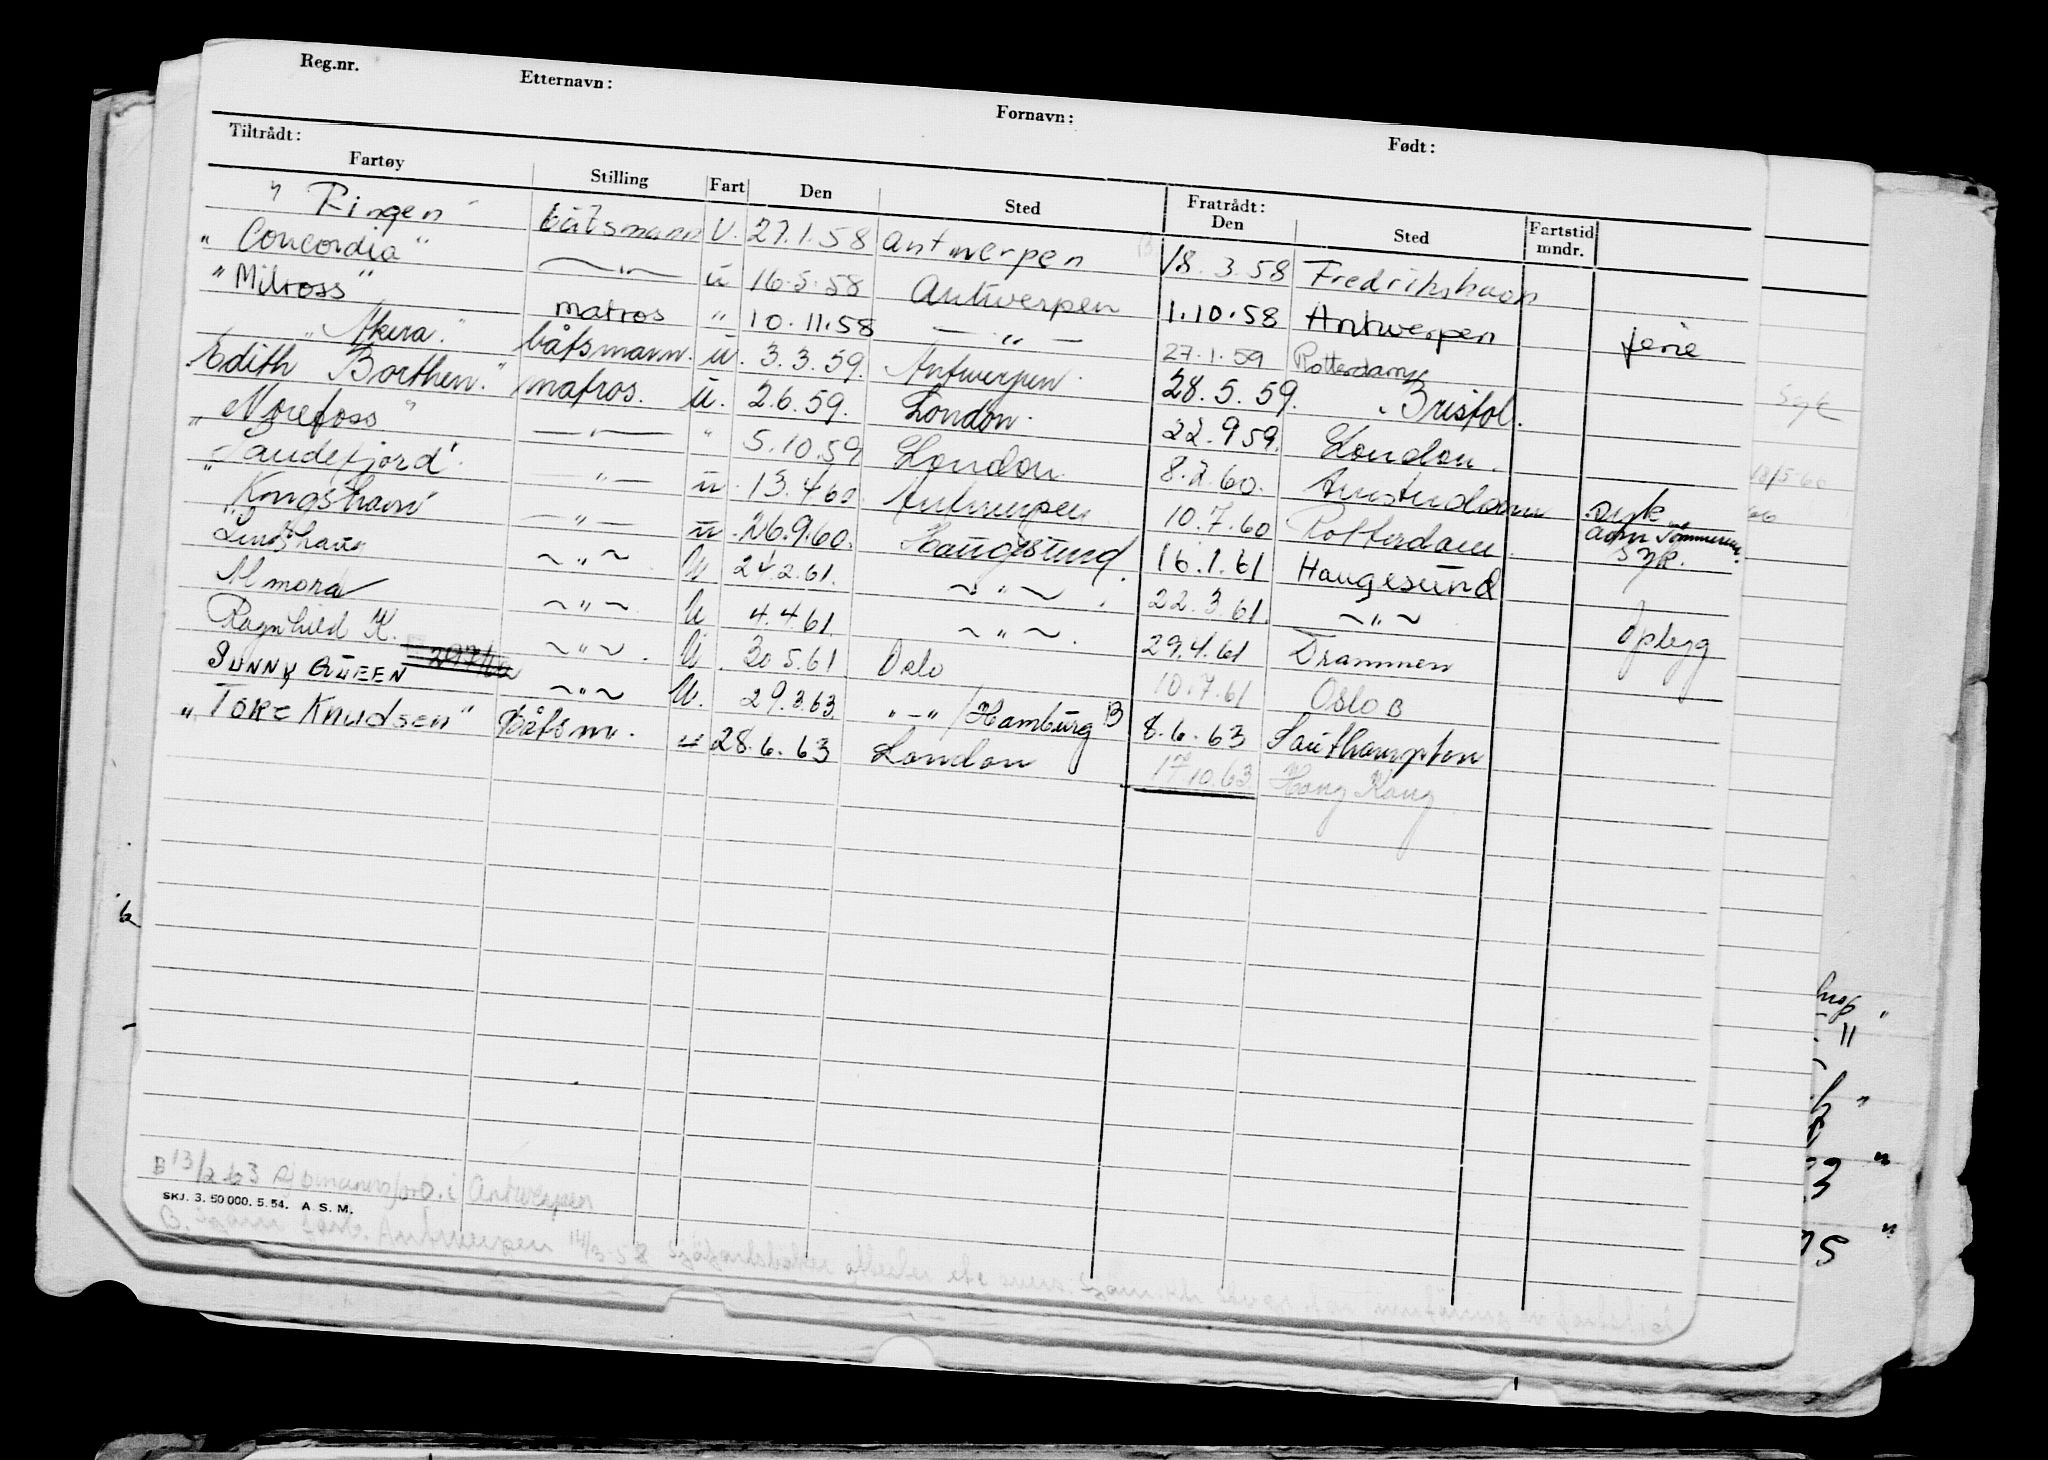 Reg.nr. Etternavn: Fornavn: Født:
Tiltrådt: Fratrådt:
Fartøy Stilling Fart Den Sted Den Sted Fartstid mndr.
" Ringen " båtsmann U. 27.1.58 Antwerpen 18.3.58 Fredrikshavn
" Concordia " — " — u 16.5.58 Antwerpen 1.10.58 Antwerpen ferie
" Milross " matros " 10.11.58 — " — 27.1.59 Rotterdam
" Akera " båtsmann. u. 3.3.59. Antwerpen. 28.5.59. Bristol.
" Edith Borthen. " matros. u. 2.6.59. London. 22.9 59. London.
" Norefoss " — " — " 5.10.59 London 8.2.60. Amsterdam syk
Sandefjord. — " — u. 13.4 60. Antwerpen 10.7.60 Rotterdam.
" Kongshavn — " — u. 26.9.60. Haugesund. 16.1.61 Haugesund syk.
~ " ~ U 24.2.61. ~ " ~ 22.3.61. ~ " ~
Almora ~ " ~ U 4.4.61. ~ " ~. 29.4.61 Drammen Oplegg
Ragnhild K. ~ " ~. U. 30 5.61 Oslo 10.7.61 Oslo B
SUNNY QUEEN ~ " ~ U. 29.3.63. " - " / Hamburg B 8.6.63 Southampton
" TORE Knudsen " Båtsm. u 28.6.63 London 17.10.63. Hong Kong
B 13/2 63 i Antwerpen
SKJ. 3. 50 000. 5. 54. A. S. M.
B. Antwerpen 14/3-58